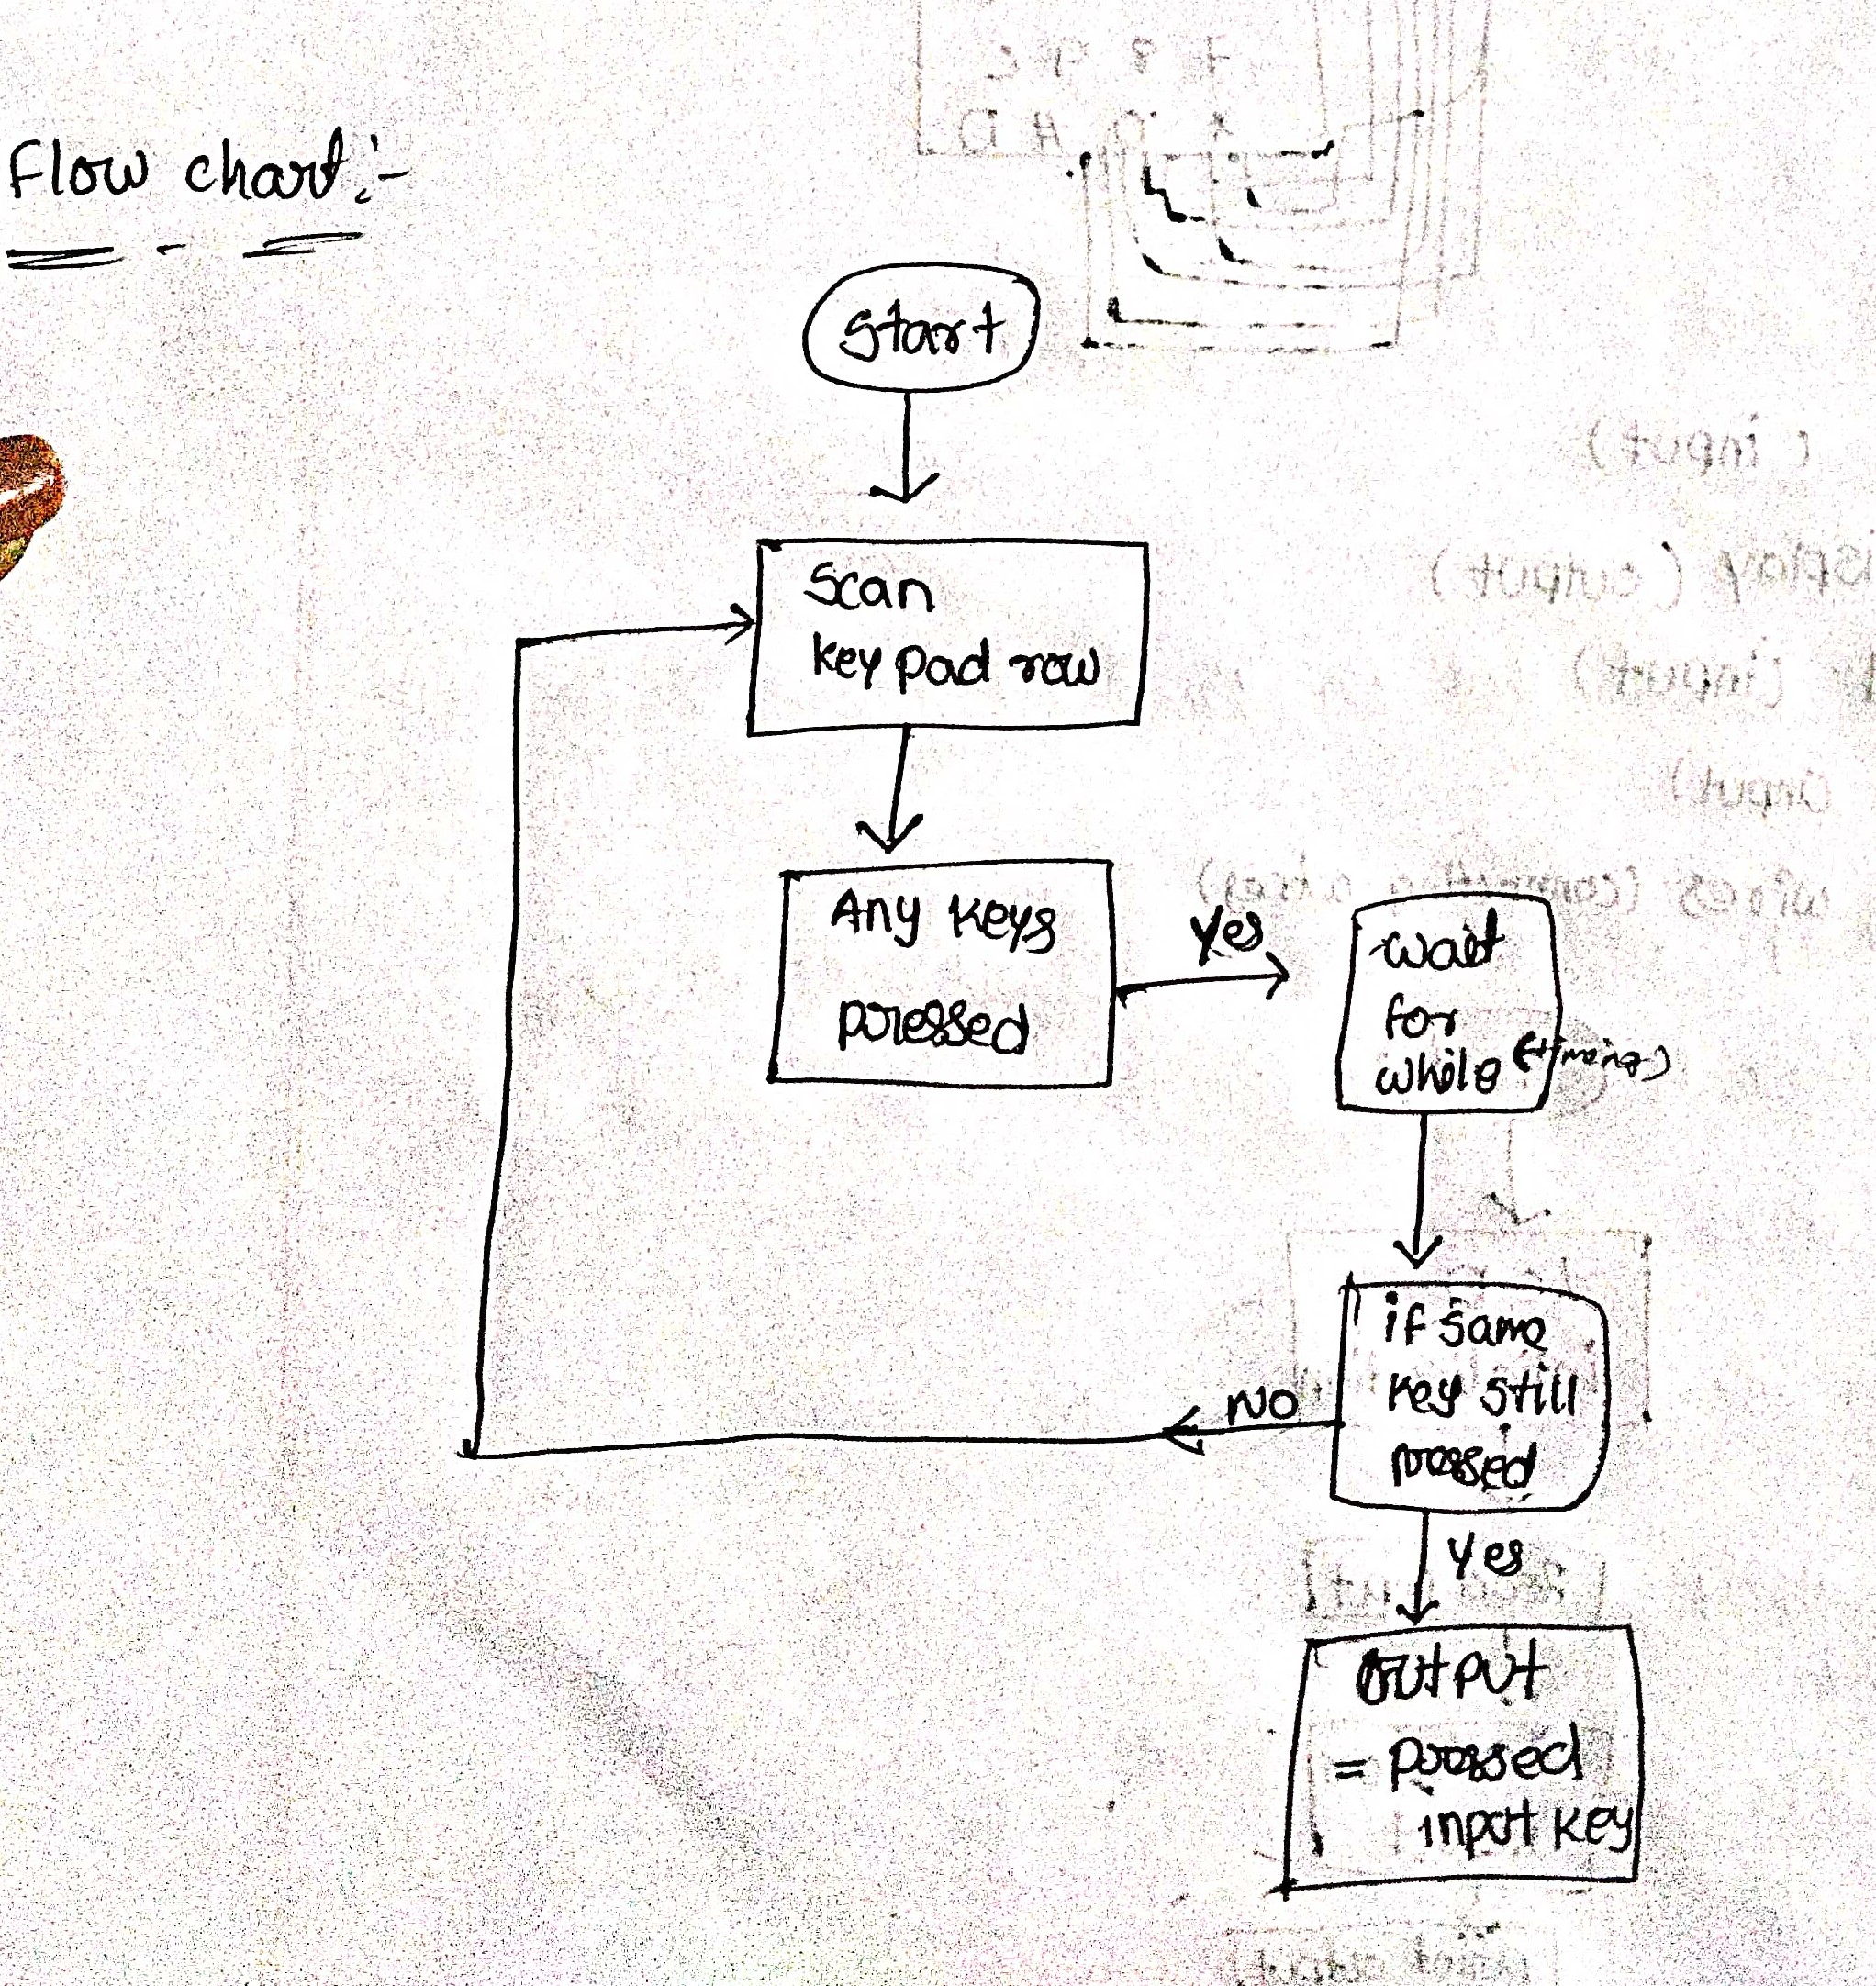 Flow chart:-
Start
Scan
key pad row
Any keys
pressed
Yes
wait
for
while (timing)
if same
key still
pressed
NO
Yes
OUTPUT
= pressed
input key